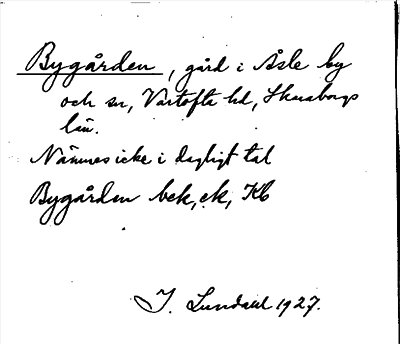 Bygården, gård i Åsle by
och sn, Vartofta hd, Skaraborgs
län.
Nämnes icke i dagligt tal
Bygården bek, ek, Kb
I. Lundahl 1927.